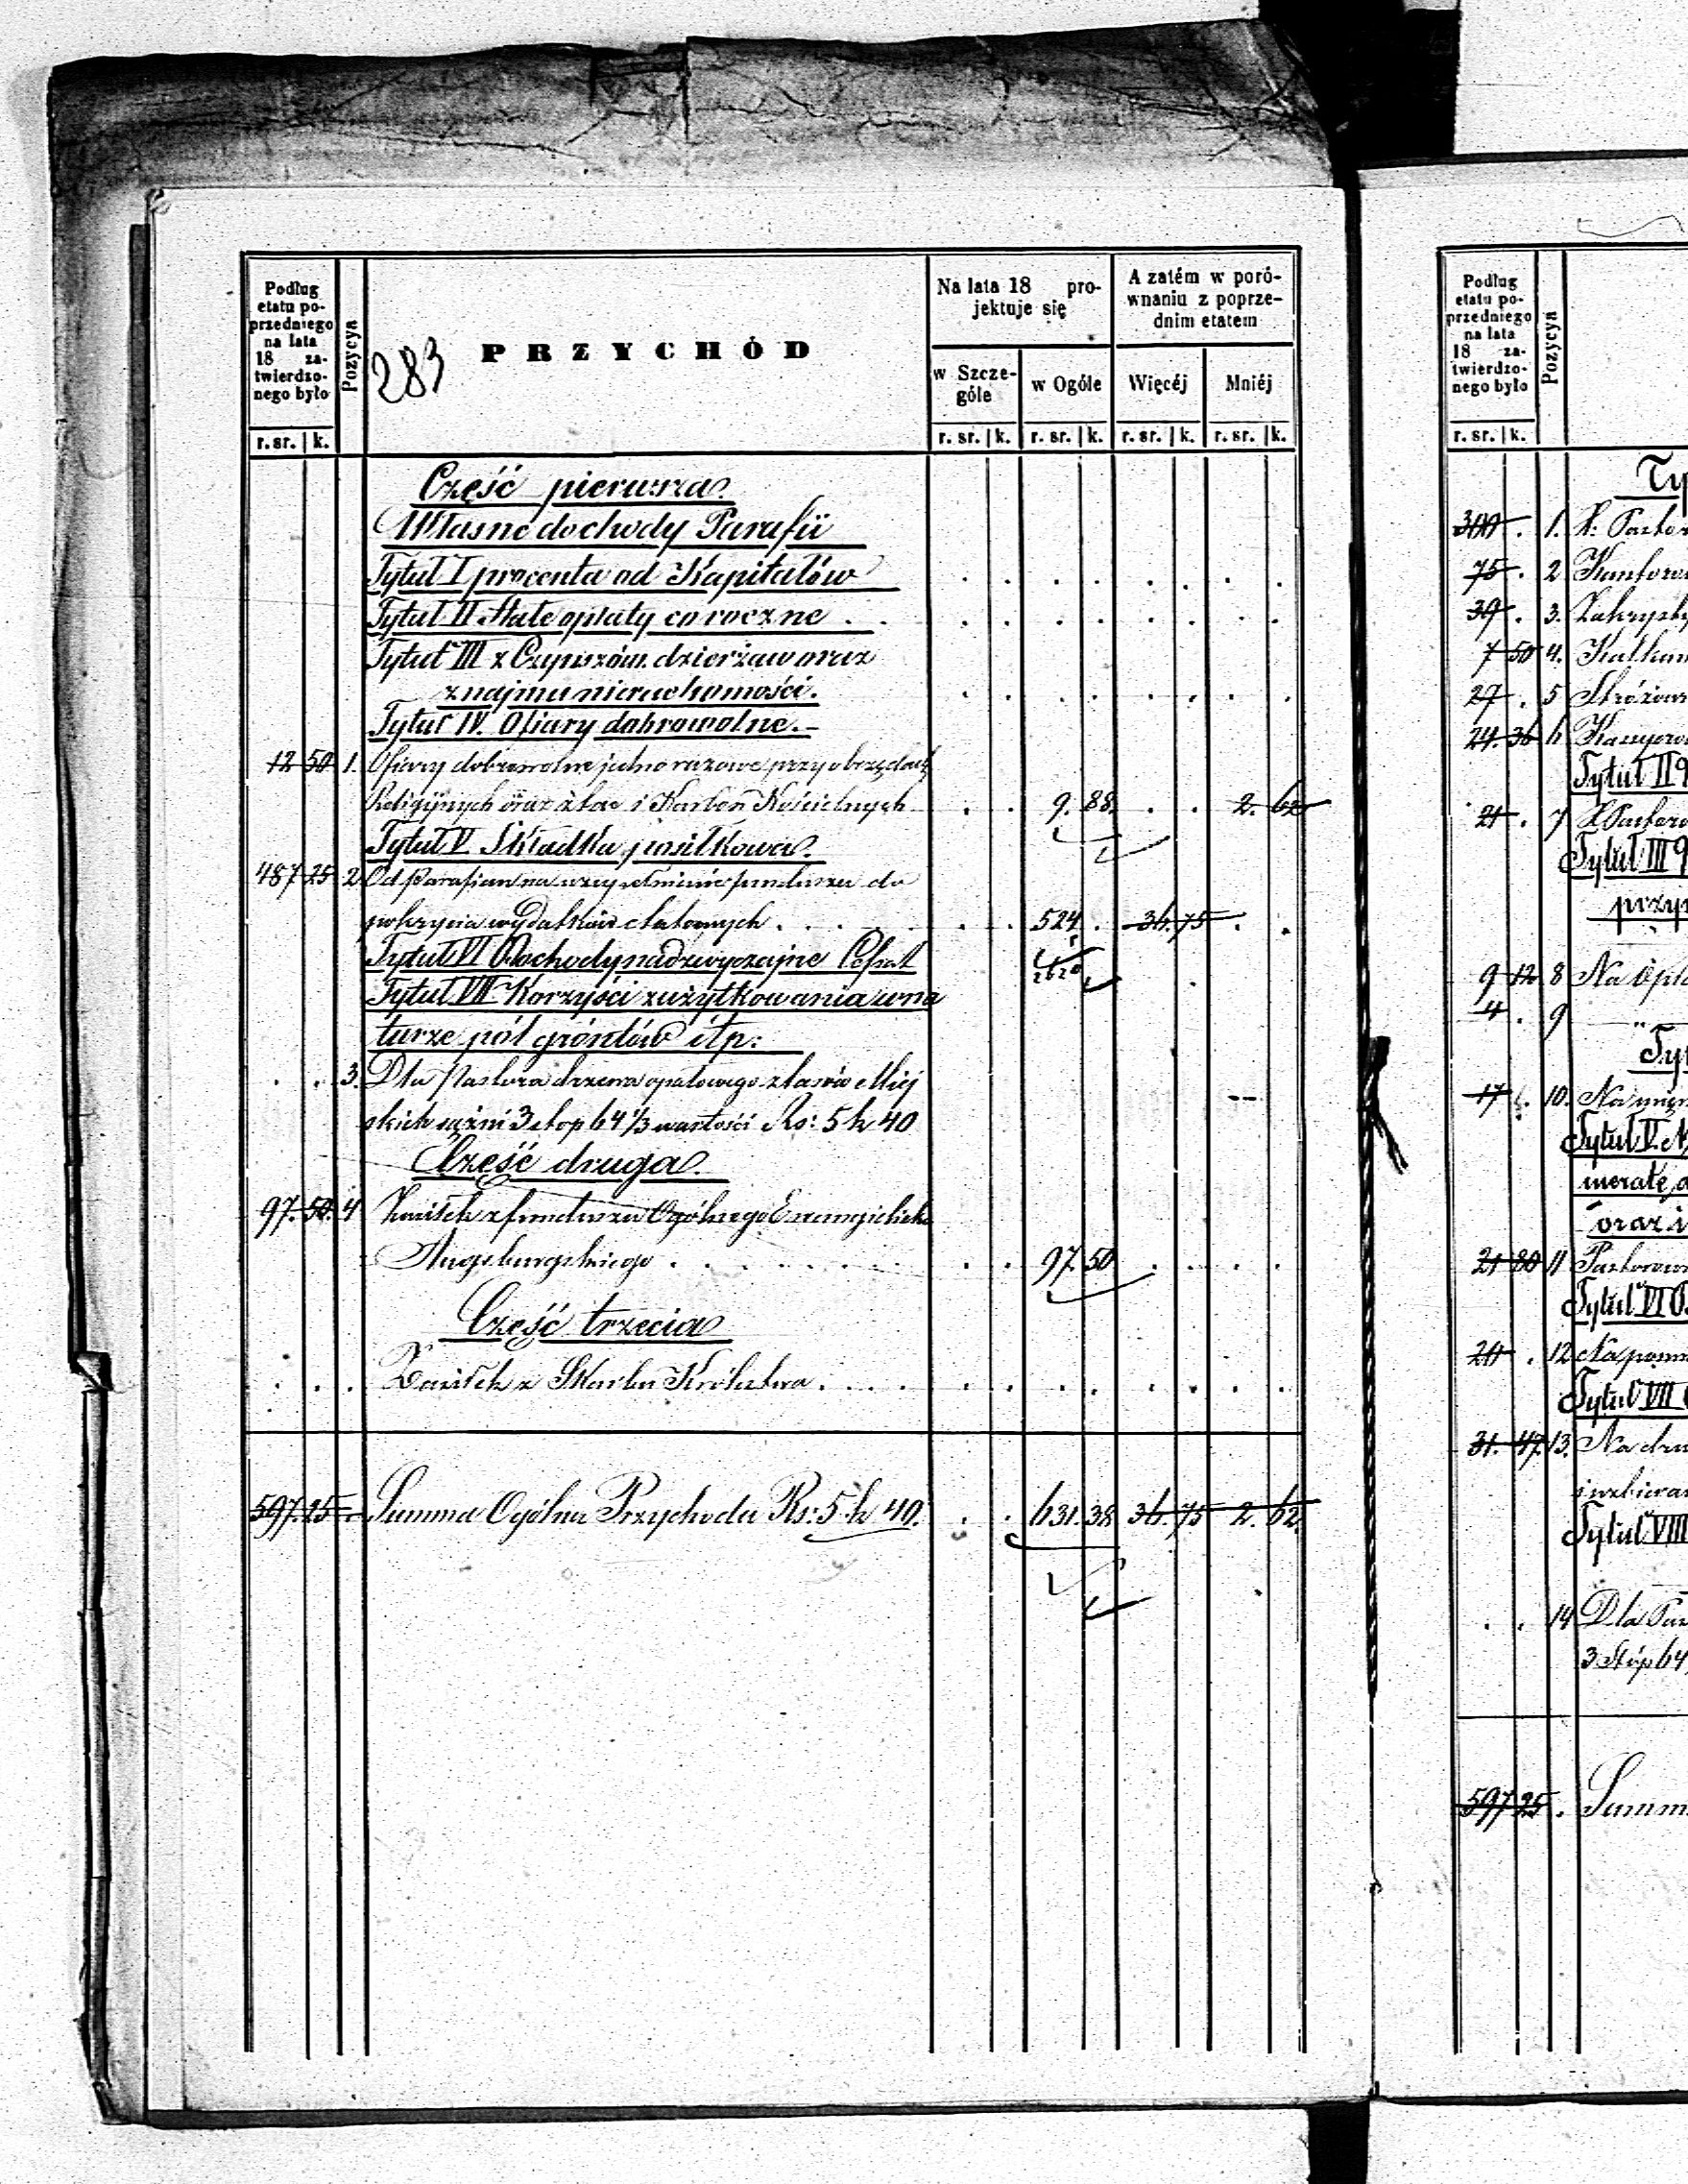 Podług etatu poprzedniego na lata 18 zatwierdzonego było
Pozycya
283
PRZYCHÓD
Na lata 18 projektuje się
A zatém w porównaniu z poprzednim etatem
w Szczególe
w Ogóle
Więcéj
Mniéj
r. sr. k. r. sr. k. r. sr. k. r. sr. k. r. sr. k.
Część pierwsza
Własne dochody Parafii
Tytuł I procenta od Kapitałów
Tytuł II Stałe opłaty coroczne . .
Tytuł III z Czynszów dzierżaw oraz
z najmu nieruchomości.
Tytuł IV. Ofiary dobrowolne.
12 50 1. Ofiary dobrowolne jedno razowe przy obrzędach
Religijnych oraz z tac i Karbon Kościelnych 9. 88. 2. 62
Tytuł V Składka posiłkowa.
487 25 2 Od Parafian na uzupełnienie funduszu do
pokrycia wydatków etatowych . . . 524 . 36. 75
Tytuł VI Dochody nadzwyczajne
Tytuł VII Korzyści z użytkowania w na
turze pól gróntów itp:
3. Dla Pastora drzewa opałowego z lasów Miej
skich sążni 3 stop 64 1/3 wartości Rs: 5 k 40
Część druga
97. 50. 4 Zasiłek z funduszu Ogólnego Ewangielicko
Augsburgskiego . . . . 97. 50
Część trzecia
Zasiłek z Skarbu Królestwa . . . .
597. 25 Summa Ogólna Przychodu Rs: 5 k 40. 631. 38 36. 75 2. 62.
Podług etatu poprzedniego na lata 18 zatwierdzonego było
Pozycya
r. sr. k.
Ty
300 . 1.
75 . 2
39 . 3.
7 50 4.
27 . 5
24. 36 6
Tytuł II
21 . 7
Tytuł III
9 12 8
4 . 9
Ty
17 . 10.
Tytuł V.
oraz
21 80 11
Tytuł VI
20 . 12
Tytuł VII
31. 47. 13.
Tytuł VIII
14 Dla
3 Stóp 64
597 25 . Summ